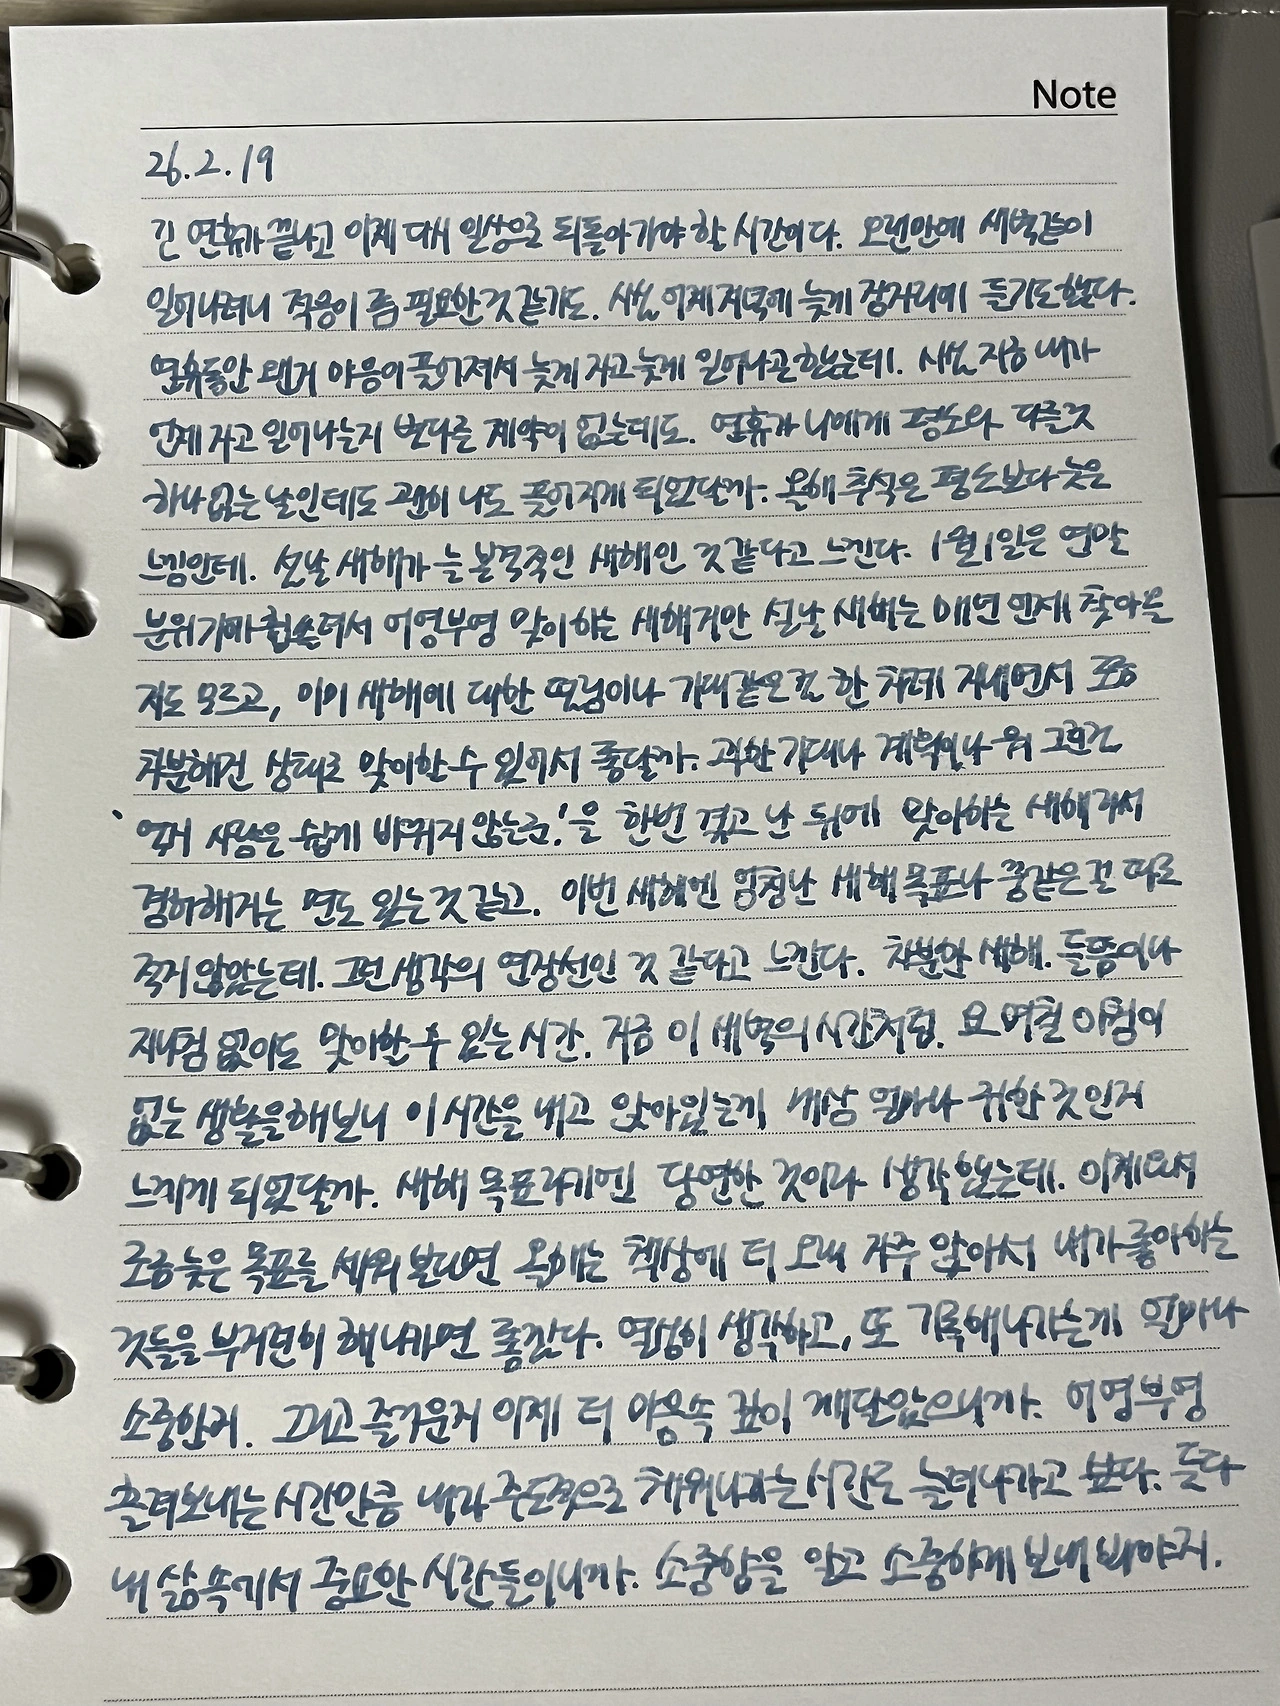 Note
26.2.19
긴 연휴가 끝나고 이제 다시 일상으로 되돌아가야 할 시간이다. 오랜만에 새벽같이
일어나려니 적응이 좀 필요한 것 같기도. 사실 어제 저녁에 늦게 잠자리에 들기도 했다.
연휴동안 왠지 마음이 풀어져서 늦게 자고 늦게 일어나곤 했는데. 사실 지금 내가
언제 자고 일어나는지 별다른 제약이 없는데도. 연휴가 나에게 평소와 다를 것
하나 없는 날인데도 괜히 나도 풀어지게 되었달까. 올해 추석은 평소보다 늦은
느낌인데. 설날 새해가 늘 본격적인 새해인 것 같다고 느낀다. 1월 1일은 연말
분위기에 휩쓸려서 어영부영 맞이하는 새해지만 설날 새해는 매년 언제 찾아올
지도 모르고, 이미 새해에 대한 떨림이나 기대같은 걸 한 차례 지내면서 조금
차분해진 상태로 맞이할 수 있어서 좋달까. 과한 기대나 계획이나 뭐 그런건
'역시 사람은 쉽게 바뀌지 않는군.'을 한번 겪고 난 뒤에 맞이하는 새해라서
겸허해지는 면도 있는 것 같고. 이번 새해엔 엄청난 새해 목표나 꿈같은 걸 따로
적지 않았는데. 그런 생각의 연장선인 것 같다고 느낀다. 차분한 새해. 들뜸이나
재나침 없이도 맞이할 수 있는 시간. 지금 이 새벽의 시간처럼. 요 며칠 아침이
없는 생활을 해보니 이 시간을 내고 앉아있는게 세상 얼마나 귀한 것인지
느끼게 되었달까. 새해 목표라기엔 당연한 것이라 생각했는데. 이제와서
조금 늦은 목표를 세워 본다면 올해는 책상에 더 오래 자주 앉아서 내가 좋아하는
것들을 부지런히 해나가면 좋겠다. 열심히 생각하고, 또 기록해나가는게 얼마나
소중한지. 그리고 즐거운지 이제 더 마음속 깊이 깨달았으니까. 어영부영
흘려보내는 시간만큼 내가 주도적으로 채워나가는 시간도 늘려나가고 싶다. 둘다
내 삶 속에서 중요한 시간들이니까. 소중함을 알고 소중하게 보내 봐야지.